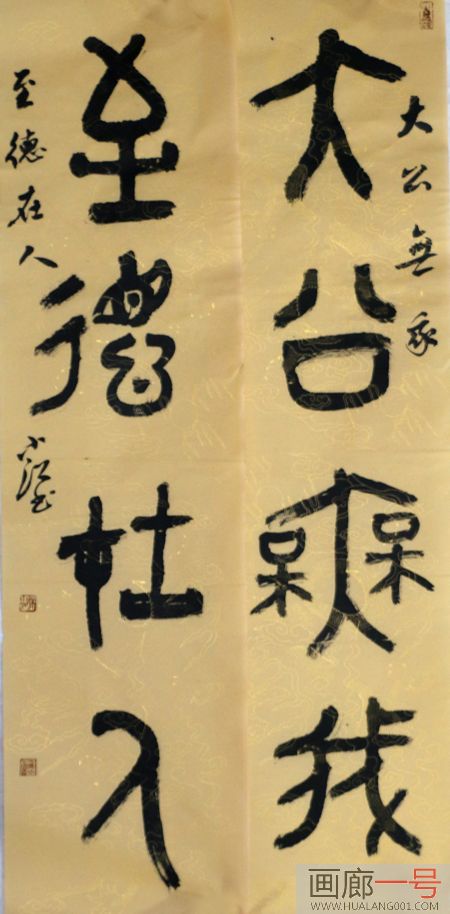 大公無我
大公無我
至德在人
至德在人
画廊一号
WWW.HUALANG001.COM